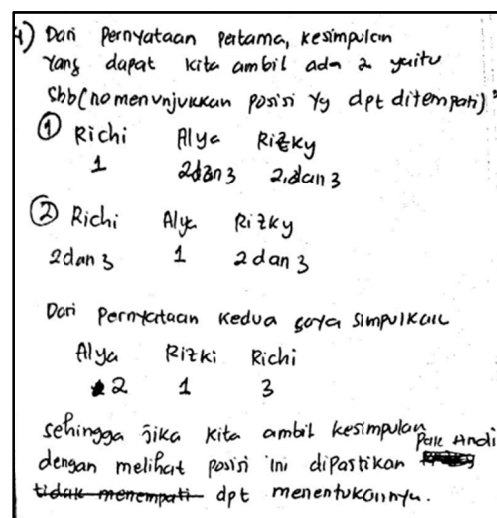 4) Dari Pernyataan pertama, kesimpulan
yang dapat kita ambil ada 2 yaitu
shb (no menunjukkan posisi yg dpt ditempati)
① Richi Alya Rizky
1 2dan3 2dan 3
② Richi Alya Rizky
2dan 3 1 2 dan 3
Dari Pernyataan kedua saya simpulkan
Alya Rizki Richi
2 1 3
sehingga jika kita ambil kesimpulan Pak Andi
dengan melihat posisi ini dipastikan
tidak menempati dpt menentukannya.